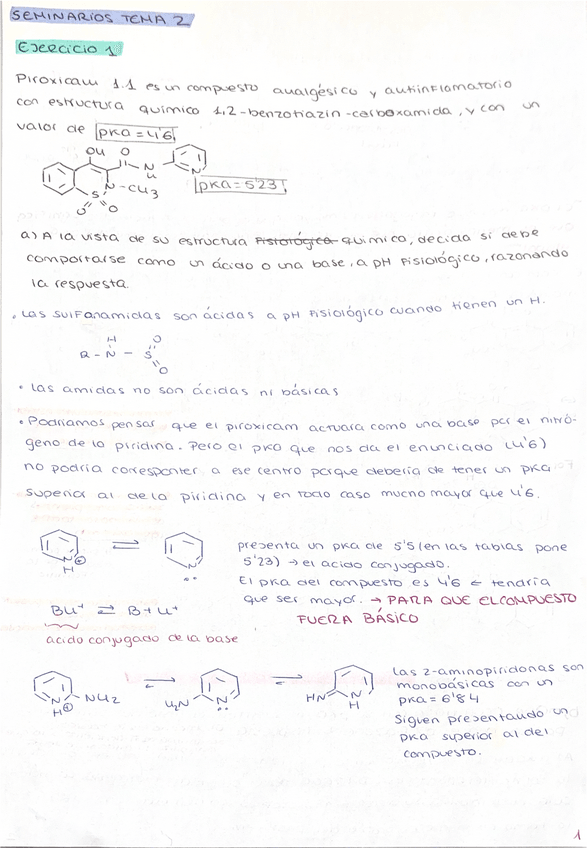 SEMINARIOS TEMA 2
EJERCICIO 1
Piroxicam 1.1 es un compuesto analgésico y antiinflamatorio
con estructura químico 1,2-benzotiazin-carboxamida, y con un
valor de pKa = 4'6
OH O
N
H
N
N-CH3
S
O O
pKa = 5'23
a) A la vista de su estructura Fisiológica químico, decida si debe
comportarse como un ácido o una base, a pH Fisiológico, razonando
la respuesta.
• Las sulfanamidas son ácidas a pH Fisiológico cuando tienen un H.
H O
R - N - S
O
• Las amidas no son ácidas ni básicas
• Podríamos pensar que el piroxicam actuara como una base por el nitró-
geno de la piridina. Pero el pKa que nos da el enunciado (4'6)
no podría corresponder a ese centro porque debería de tener un pKa
superior al de la piridina y en todo caso mucho mayor que 4'6.
N
H
⊕
⇌
N
presenta un pKa de 5'5 (en las tablas pone
5'23) → el acido conjugado.
El pKa del compuesto es 4'6 ← tendría
que ser mayor. → PARA QUE EL COMPUESTO
FUERA BÁSICO
BH+ ⇌ B + H+
acido conjugado de la base
N
H
⊕
NH2
⇌
H2N
N
⇌
HN
N
H
Las 2-aminopiridonas son
monobásicas con un
pKa = 6'84
Siguen presentando un
pKa superior al del
compuesto.
1